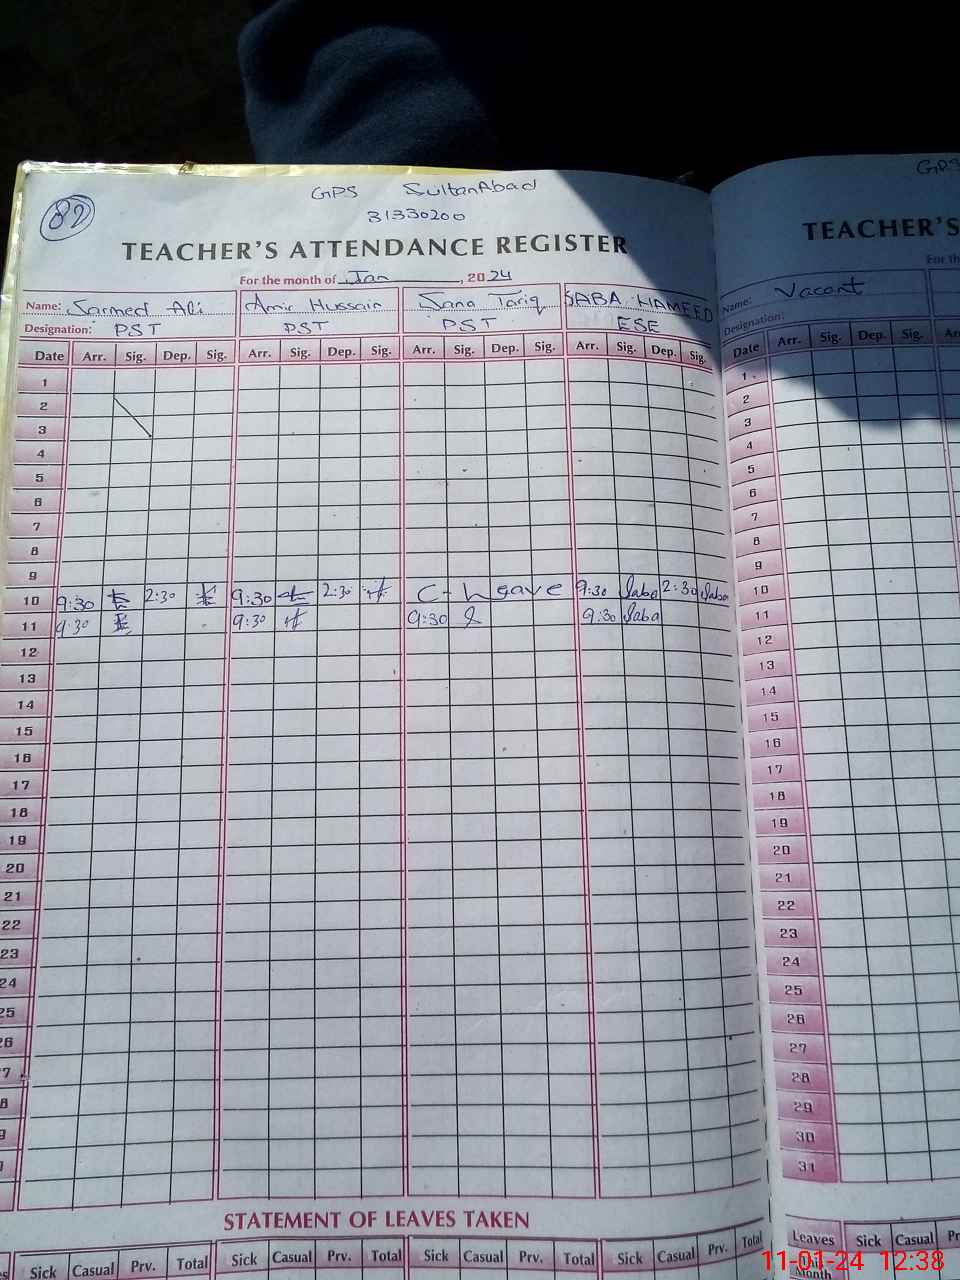 82
GPS SultanAbad
31330200
TEACHER'S ATTENDANCE REGISTER
For the month of Jan, 2024
Name: Sarmed Ali Amir Hussain Sana Tariq SABA HAMEED
Designation: PST PST PST ESE
Date Arr. Sig. Dep. Sig. Arr. Sig. Dep. Sig. Arr. Sig. Dep. Sig. Arr. Sig. Dep. Sig.
1
2
3
4
5
6
7
8
9
10 9:30 2:30 9:30 2:30 C-Leave 9:30 Saba 2:30 Saba
11 9:30 9:30 9:30 9:30 Saba
12
13
14
15
16
17
18
19
20
21
22
23
24
25
26
7
8
9
STATEMENT OF LEAVES TAKEN
Sick Casual Prv. Total Sick Casual Prv. Total Sick Casual Prv. Total Sick Casual Prv. Total
GPS
TEACHER'S
For th
Name: Vacant
Designation:
Date Arr. Sig. Dep. Sig.
1
2
3
4
5
6
7
8
9
10
11
12
13
14
15
16
17
18
19
20
21
22
23
24
25
26
27
28
29
30
31
Leaves Sick Casual
Month
11-01-24 12:38